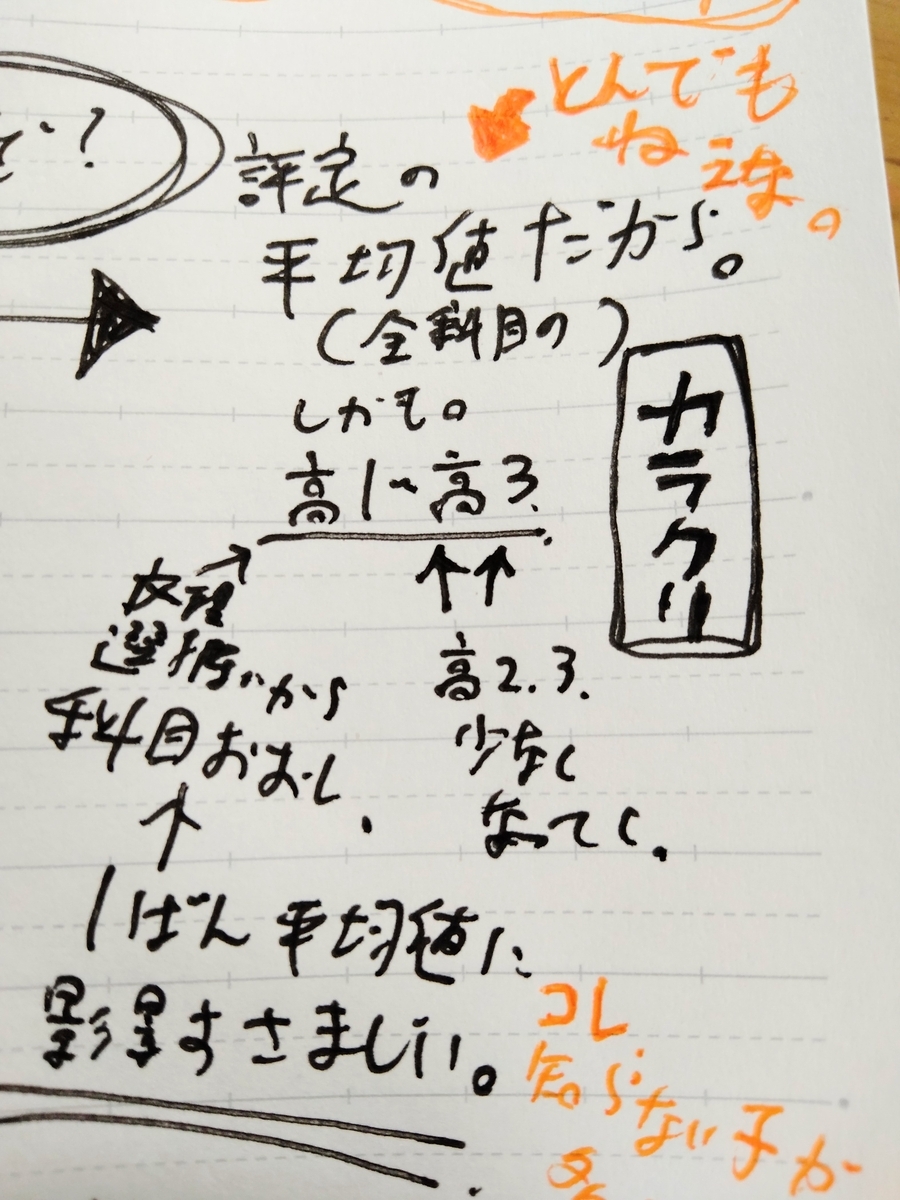 とんでも
ねえな。
評定の
平均値だから。
(全科目の)
カラクリ
しかも。
高1~高3.
文理
選択から
科目おおし.
高2.3.
少なく
なってく.
1ばん平均値に
影響すさましい。
コレ
知らない子が